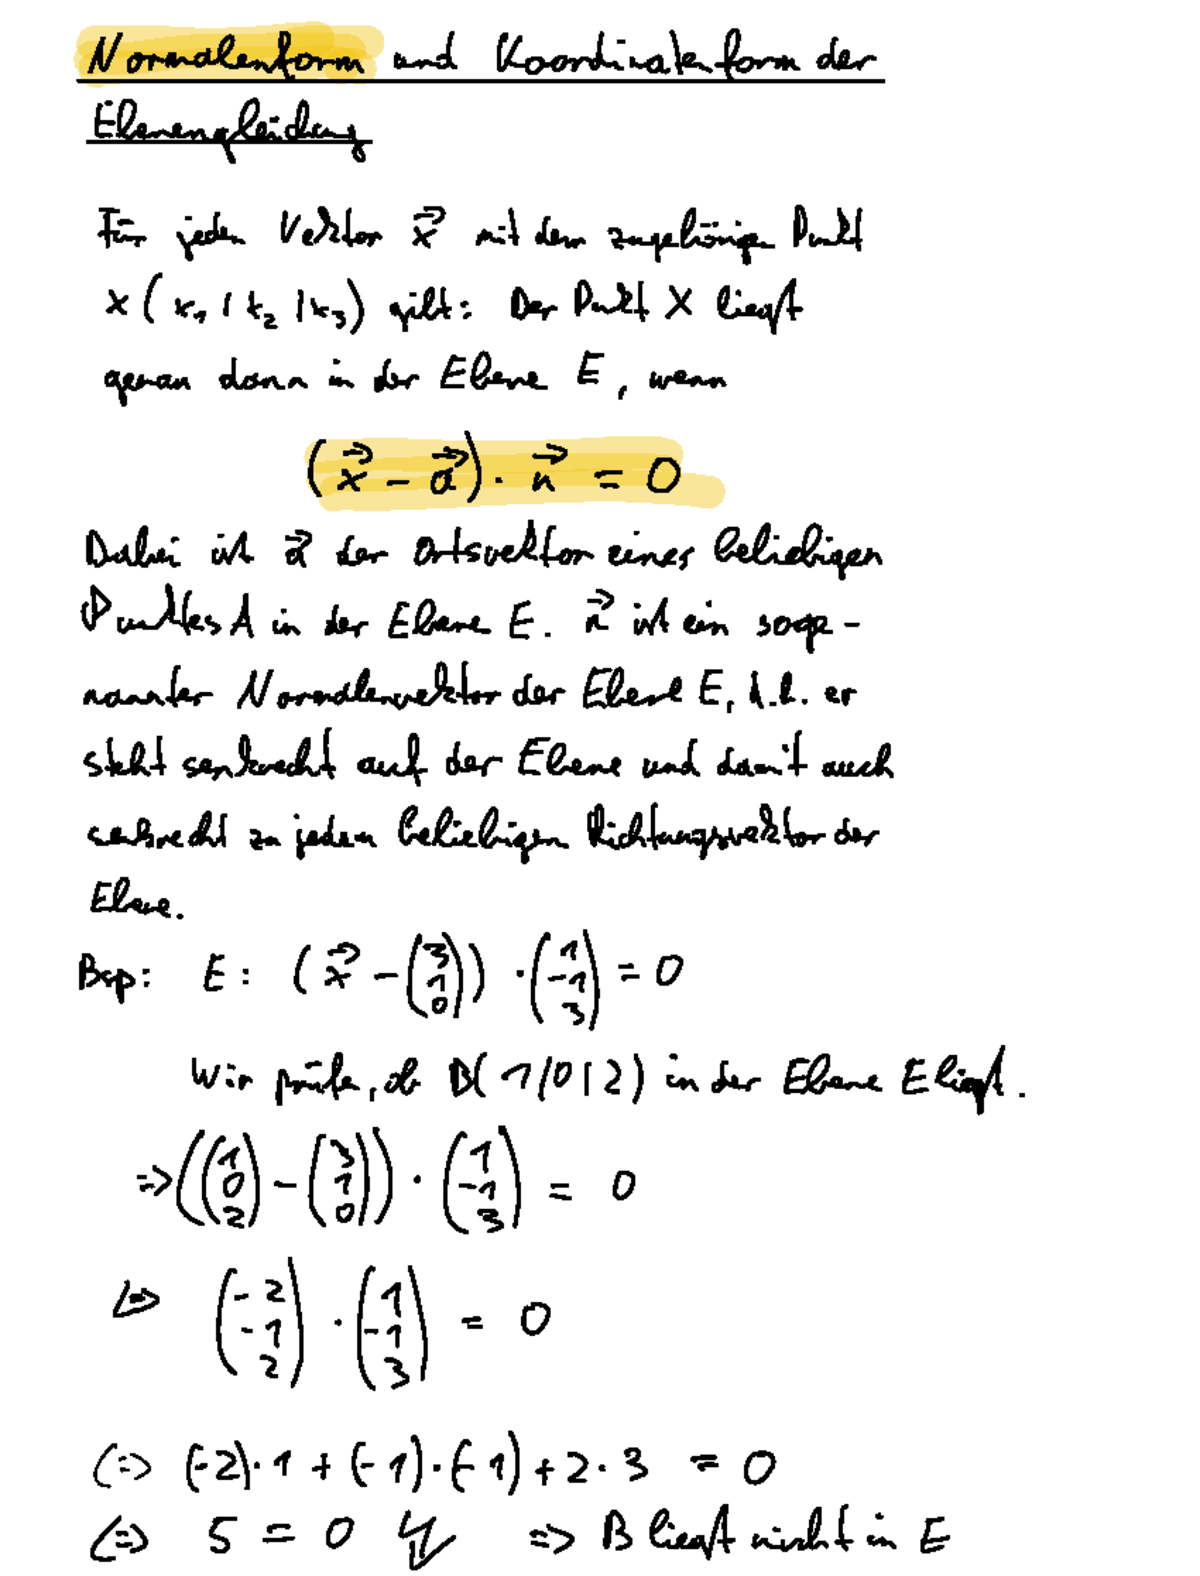 Normalenform und Koordinatenform der
Ebenengleichung
Für jeden Vektor x⃗ mit dem zugehörigen Punkt
X ( x₁ | x₂ | x₃ ) gilt: Der Punkt X liegt
genau dann in der Ebene E, wenn
(x⃗ - a⃗) · n⃗ = 0
Dabei ist a⃗ der Ortsvektor eines beliebigen
Punktes A in der Ebene E. n⃗ ist ein soge-
nannter Normalenvektor der Ebene E, d.h. er
steht senkrecht auf der Ebene und damit auch
senkrecht zu jedem beliebigen Richtungsvektor der
Ebene.
Bsp: E: ( x⃗ - (3 1 0) ) · (1 -1 3) = 0
Wir prüfen, ob B( 1 | 0 | 2 ) in der Ebene E liegt.
=> ( (1 0 2) - (3 1 0) ) · (1 -1 3) = 0
<=> (-2 -1 2) · (1 -1 3) = 0
<=> (-2) · 1 + (-1) · (-1) + 2 · 3 = 0
<=> 5 = 0 ↯ => B liegt nicht in E